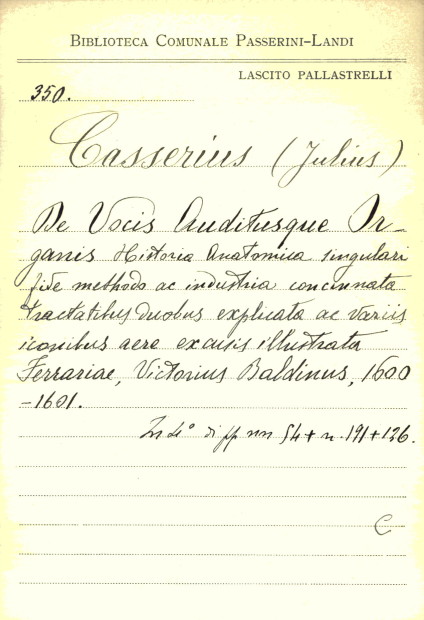 BIBLIOTECA COMUNALE PASSERINI-LANDI
LASCITO PALLASTRELLI
350.
Casserius (Julius)
De Vocis Auditusque Or-
ganis Historia Anatomica singulari
fide methodo ac industria concinnata
tractatibus duobus explicata ac variis
iconibus aere excusis illustrata
Ferrariae, Victorius Baldinus, 1600
-1601.
In 4° di pp nn 54 + n. 191 + 126.
C